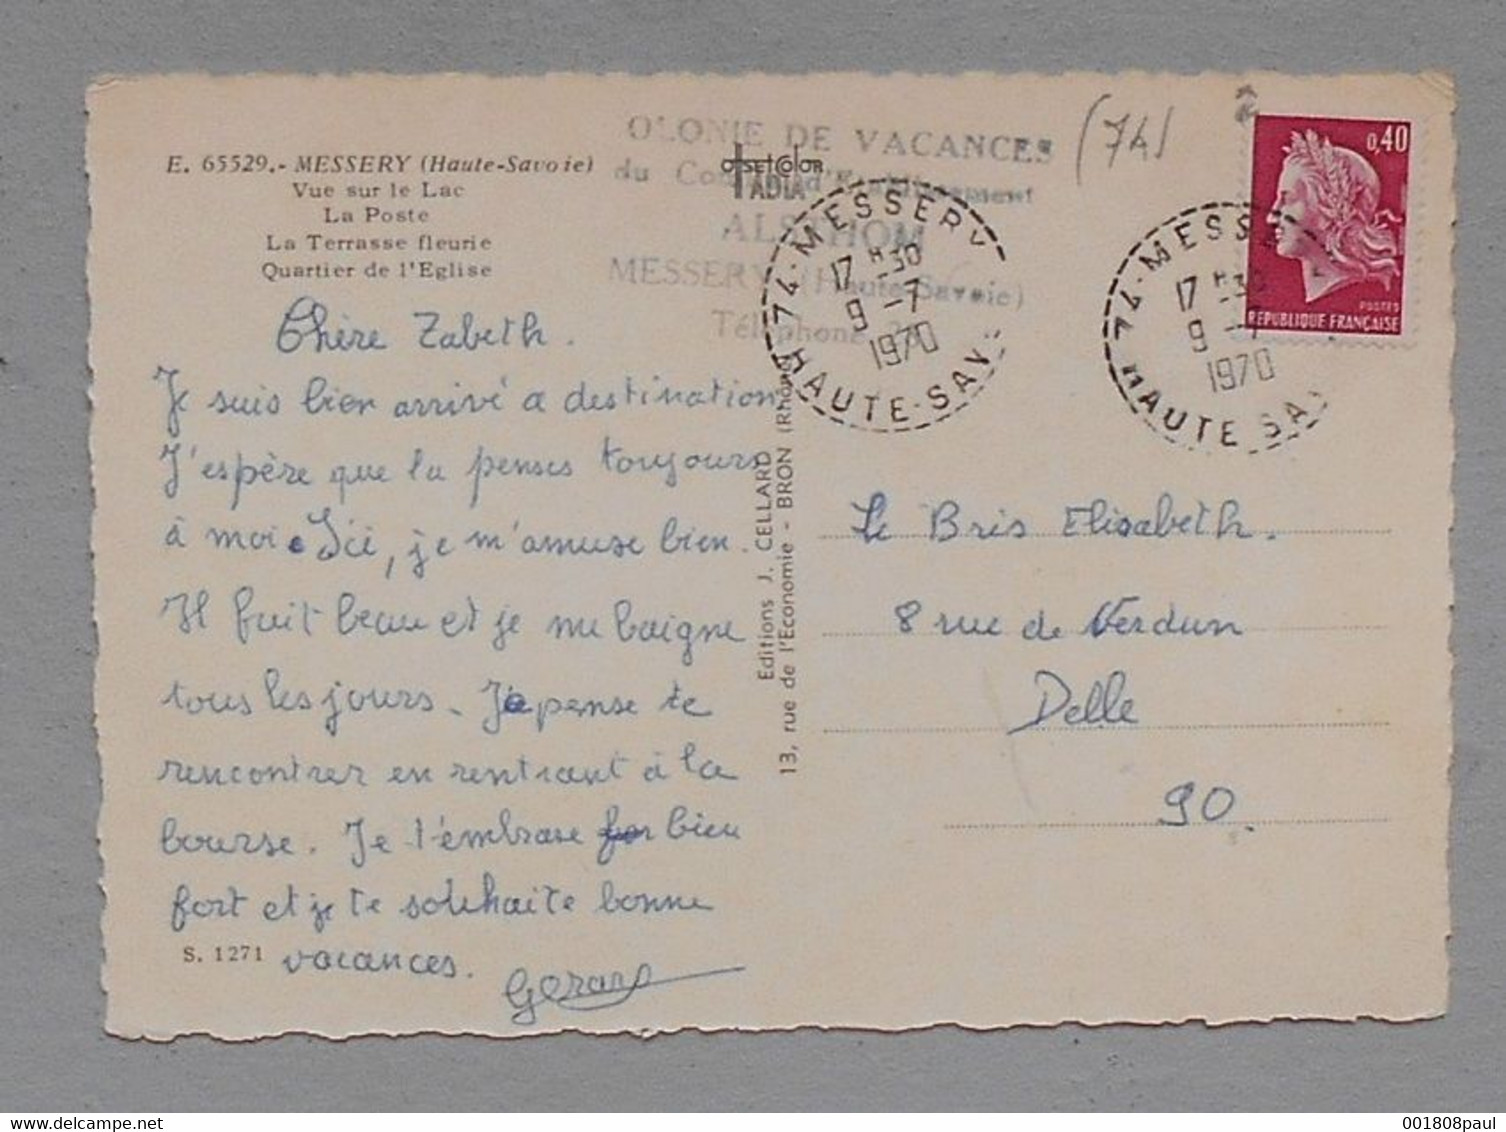 E. 65529.- MESSERY (Haute-Savoie)
Vue sur le Lac
La Poste
La Terrasse fleurie
Quartier de l'Eglise
OLONIE DE VACANCES
du Comité d'Etablissement
ALSTHOM
MESSERY (Haute-Savoie)
Téléphone
offsetcolor
IADIA
(74)
74-MESSERY
17 H30
9 -7
1970
HAUTE-SAV.
74-MESSE
17 H30
9 -7
1970
HAUTE SA
0,40
POSTES
REPUBLIQUE FRANÇAISE
Chère Zabeth.
Je suis bien arrivé a destination
J'espère que tu penses toujours
à moi. Ici, je m'amuse bien.
Il fait beau et je me baigne
tous les jours. Je pense te
rencontrer en rentrant à la
bourse. Je t'embrasse for bien
fort et je te souhaite bonne
vacances.
Gérard
S. 1271
Editions J. CELLARD
13, rue de l'Economie - BRON (Rhône)
Le Bris Elisabeth.
8 rue de Verdun
Delle
90.
001808paul